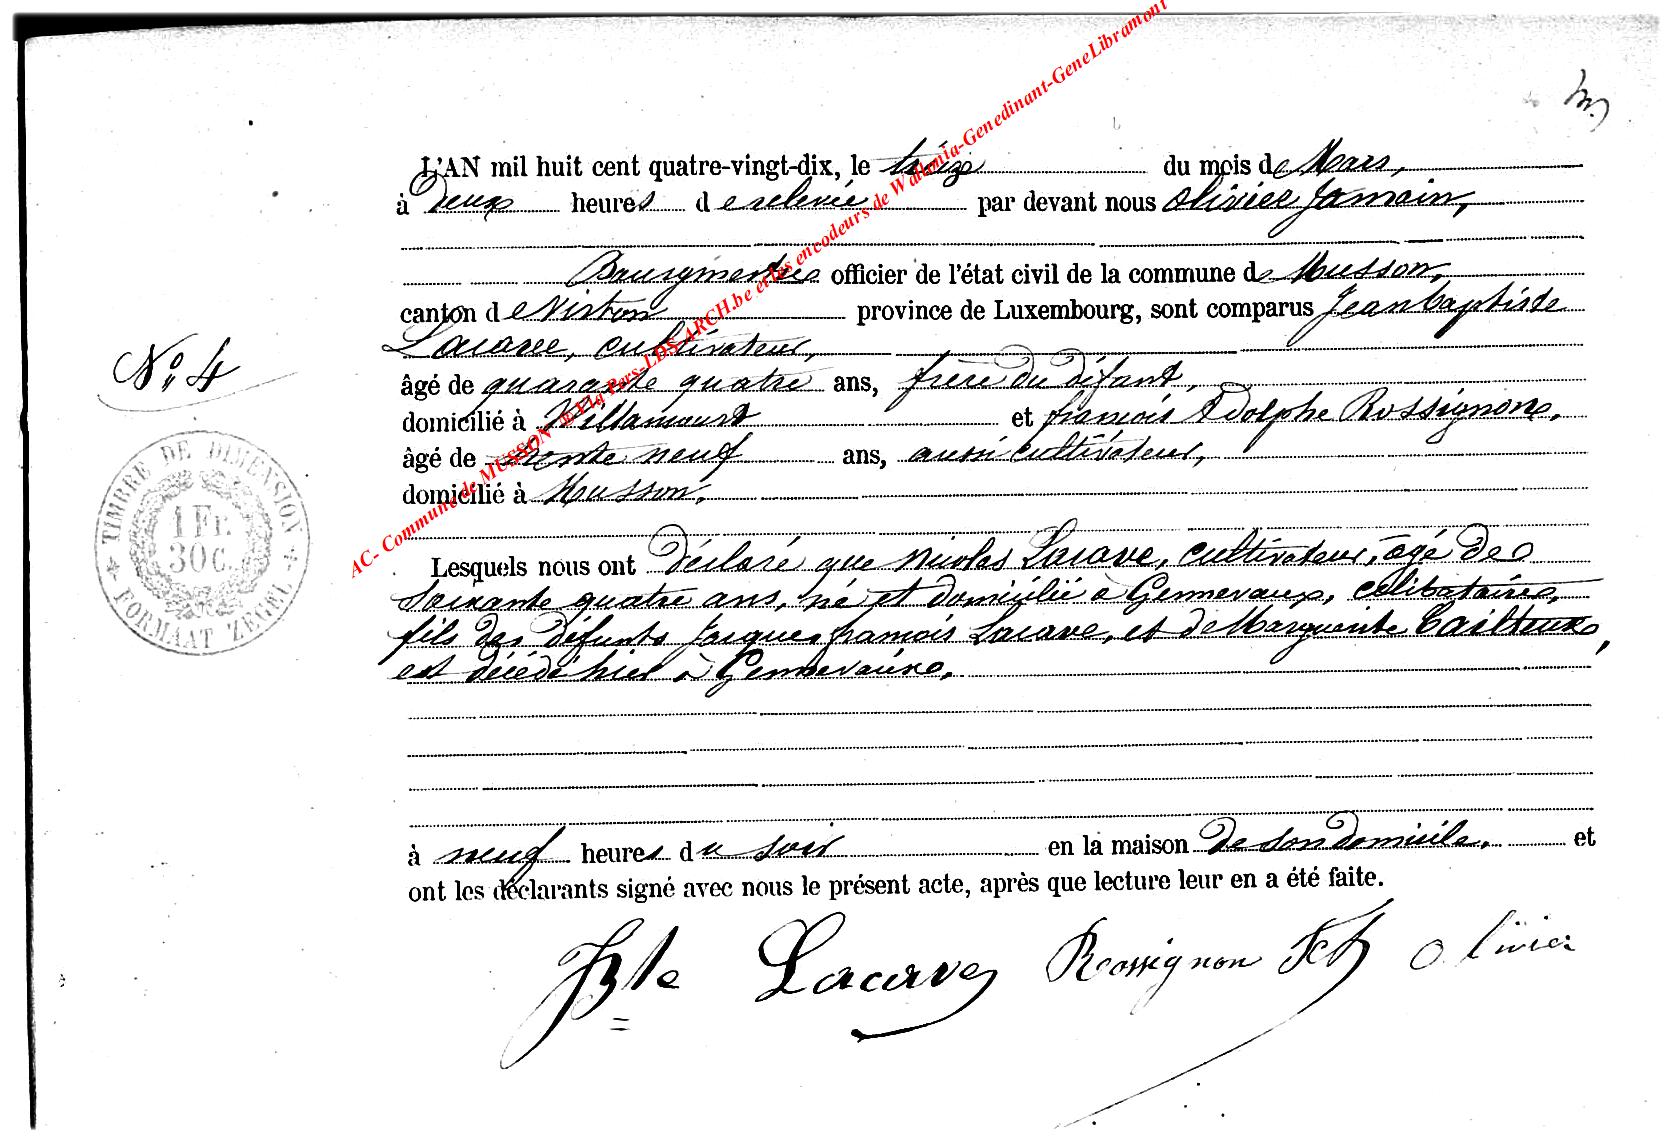 L'AN mil huit cent quatre-vingt-dix, le treize du mois de Mars,
à deux heures de relevée par devant nous Olivier Jamain,
Bourgmestre officier de l'état civil de la commune de Musson,
canton de Virton province de Luxembourg, sont comparus Jean Baptiste
Lacave, cultivateur,
âgé de quarante quatre ans, frère du défunt,
N° 4
domicilié à Willancourt et françois Adolphe Rossignon,
âgé de trente neuf ans, aussi cultivateur,
domicilié à Musson.
TIMBRE DE DIMENSION
1 Fr.
30 C.
FORMAAT ZEGEL
Lesquels nous ont déclaré que Nicolas Lacave, cultivateur, âgé de
soixante quatre ans, né et domicilié à Gennevaux, célibataire,
fils des défunts Jacques françois Lacave, et de Marguerite Cailteux,
est décédé hier à Gennevaux,
à neuf heures du soir en la maison de son domicile, et
ont les déclarants signé avec nous le présent acte, après que lecture leur en a été faite.
JBte Lacave Rossignon Olivier
AC- Commune de MUSSON @Via Pers-LDS-ARCH.be et les encodeurs de Wallonia-Genedinant-GeneLibramont